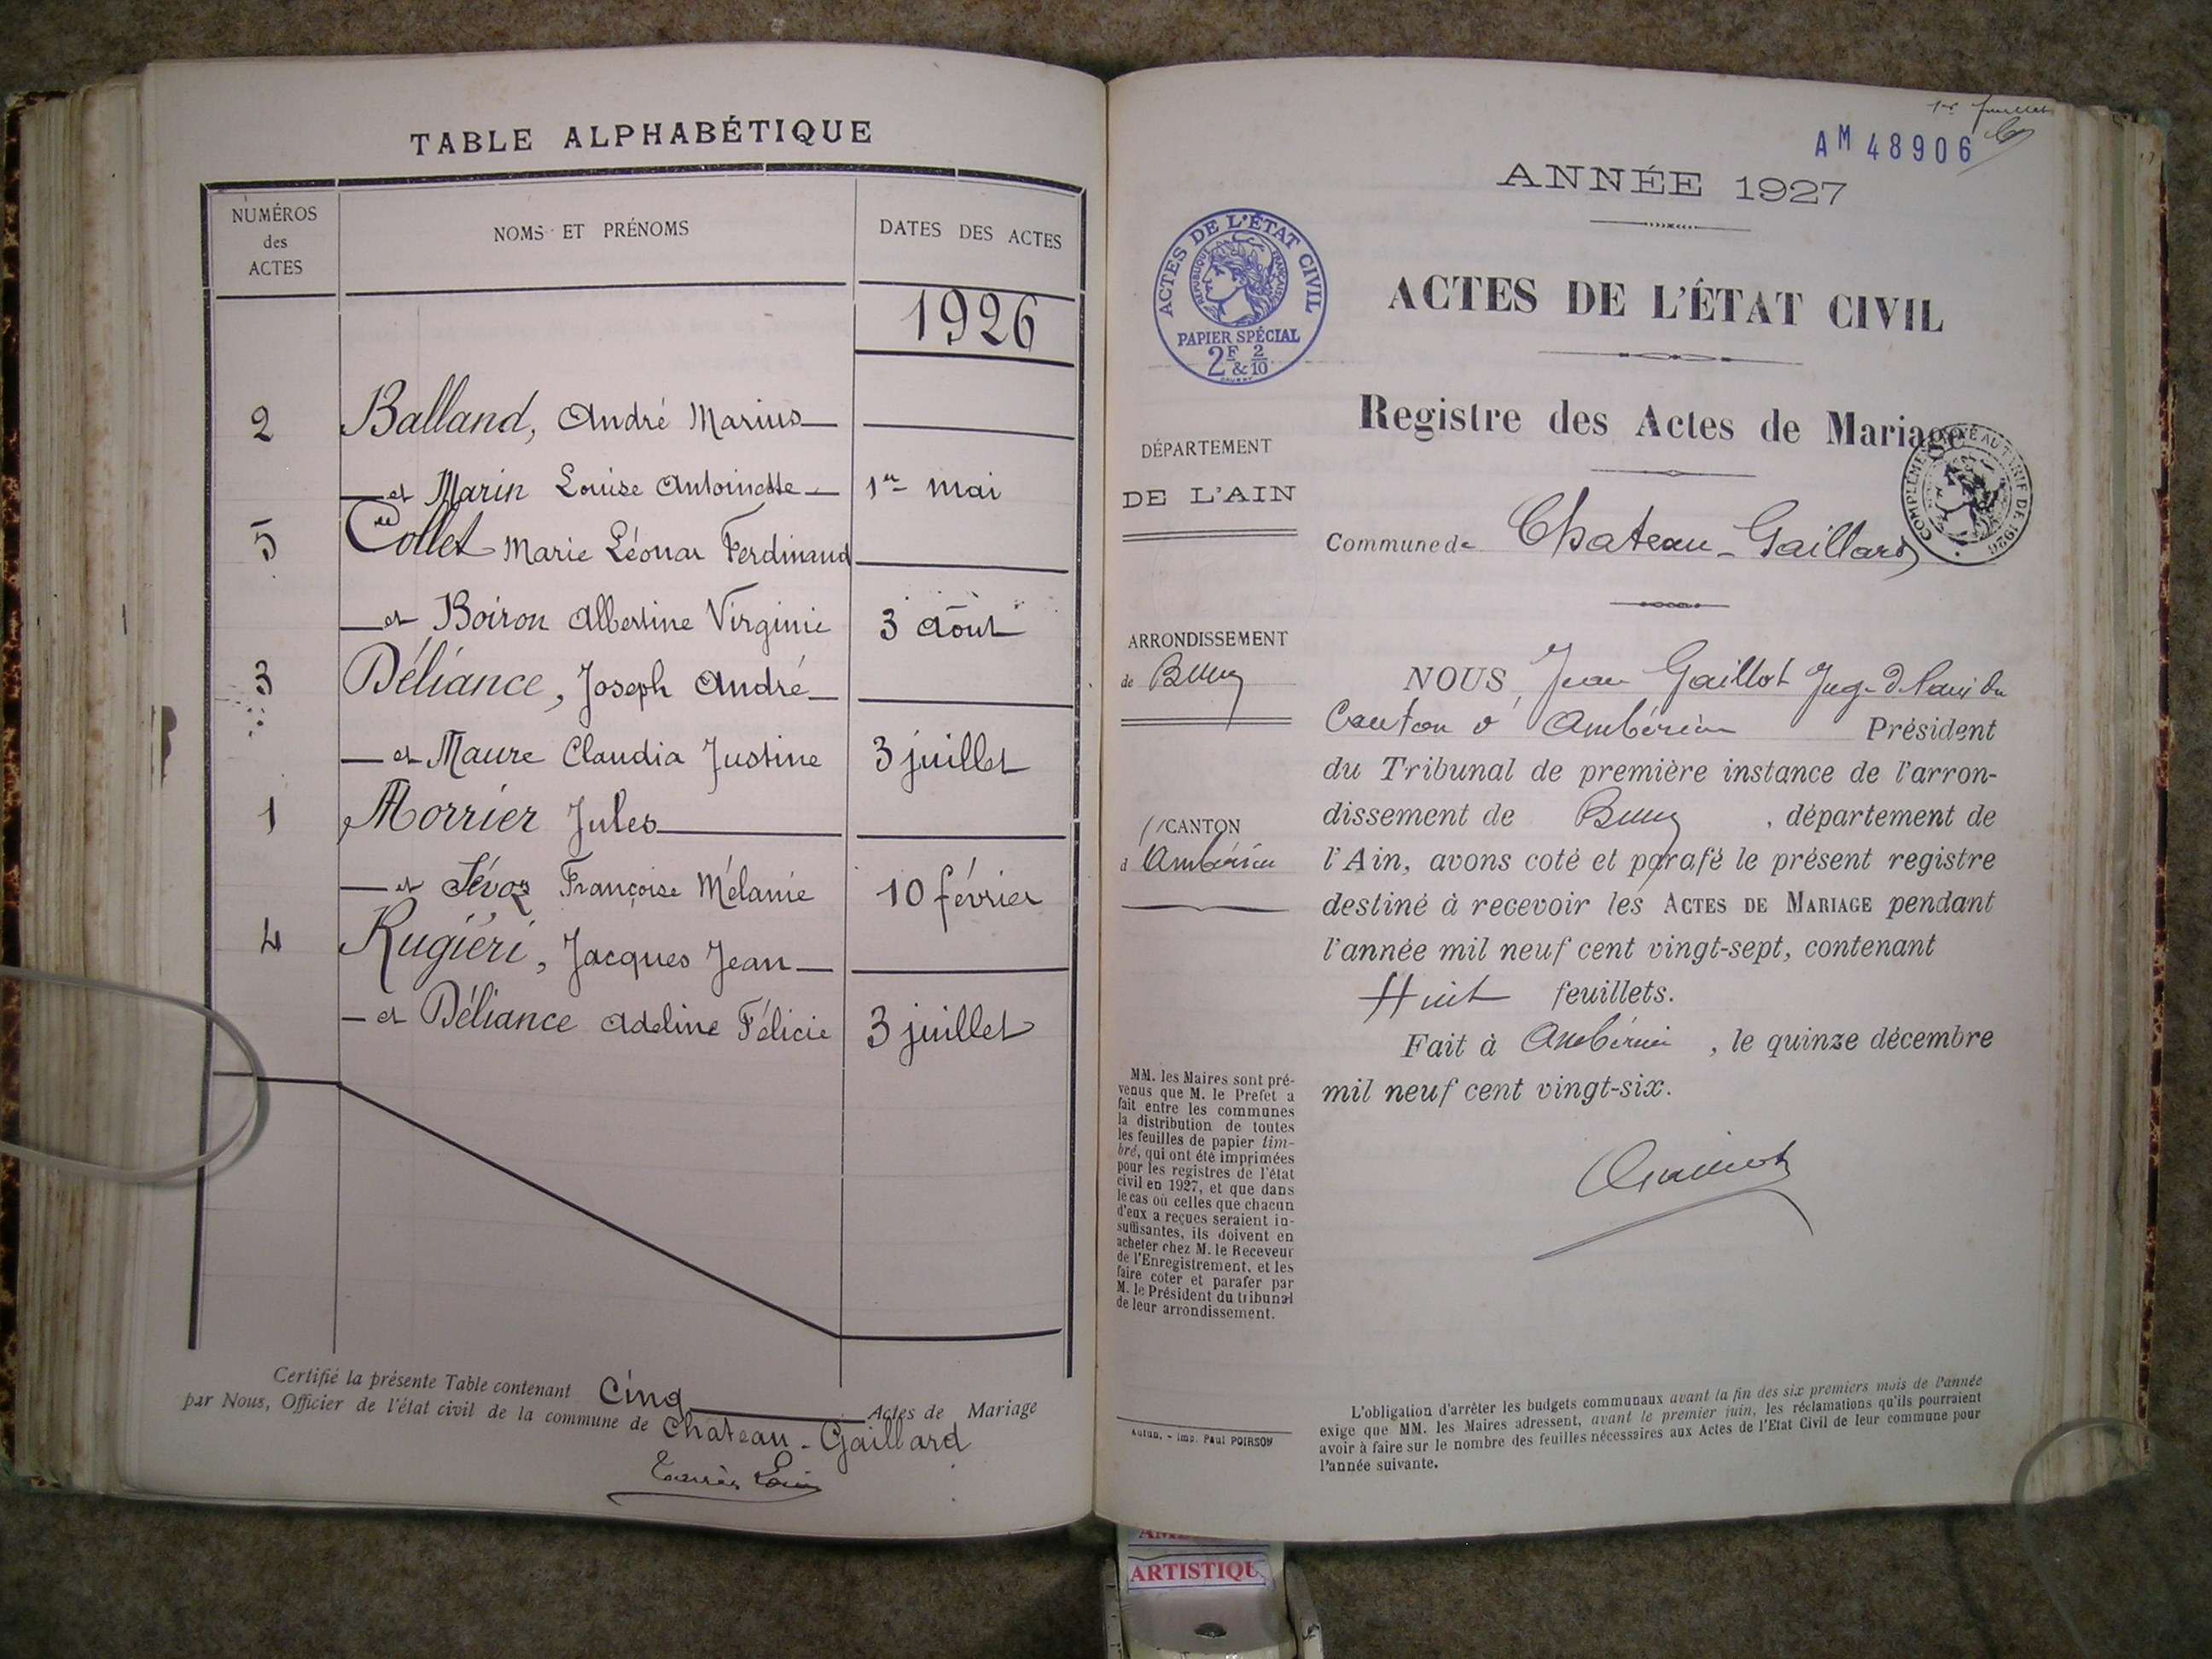 TABLE ALPHABÉTIQUE
NUMÉROS des ACTES
NOMS ET PRÉNOMS
DATES DES ACTES
1926
2 Balland, André Marius
et Marin Louise Antoinette 1er mai
5 Collet Marie Léonar Ferdinand
et Boiron Albertine Virginie 3 Août
3 Déliance, Joseph André
et Maure Claudia Justine 3 juillet
1 Morrier Jules
et Sévoz Françoise Mélanie 10 février
4 Rugiéri, Jacques Jean
et Déliance Adeline Félicie 3 juillet
Certifié la présente Table contenant Cinq Actes de Mariage
par Nous, Officier de l'état civil de la commune de Château-Gaillard
1er feuillet
AM 48906
ANNÉE 1927
ACTES DE L'ÉTAT CIVIL
RÉPUBLIQUE FRANÇAISE
PAPIER SPÉCIAL
2F & 2/10
ACTES DE L'ÉTAT CIVIL
Registre des Actes de Mariage
COMPLÉMENTÉ AU TARIF DE 1926
DÉPARTEMENT
DE L'AIN
Commune de Chateau-Gaillard
ARRONDISSEMENT
de Bourg
CANTON
d'Ambérieu
NOUS, Jean Gaillot Juge de Paix du
Canton d'Ambérieu Président
du Tribunal de première instance de l'arron-
dissement de Bourg, département de
l'Ain, avons coté et parafé le présent registre
destiné à recevoir les ACTES DE MARIAGE pendant
l'année mil neuf cent vingt-sept, contenant
Huit feuillets.
Fait à Ambérieu, le quinze décembre
mil neuf cent vingt-six.
MM. les Maires sont pré-
venus que M. le Préfet a
fait entre les communes
la distribution de toutes
les feuilles de papier tim-
bré, qui ont été imprimées
pour les registres de l'état
civil en 1927, et que dans
le cas où celles que chacun
d'eux a reçues seraient in-
suffisantes, ils doivent en
acheter chez M. le Receveur
de l'Enregistrement, et les
faire coter et parafer par
M. le Président du tribunal
de leur arrondissement.
Autun. - Imp. Paul POIRSON
L'obligation d'arrêter les budgets communaux avant la fin des six premiers mois de l'année
exige que MM. les Maires adressent, avant le premier juin, les réclamations qu'ils pourraient
avoir à faire sur le nombre des feuilles nécessaires aux Actes de l'Etat Civil de leur commune pour
l'année suivante.
ARTISTIQU